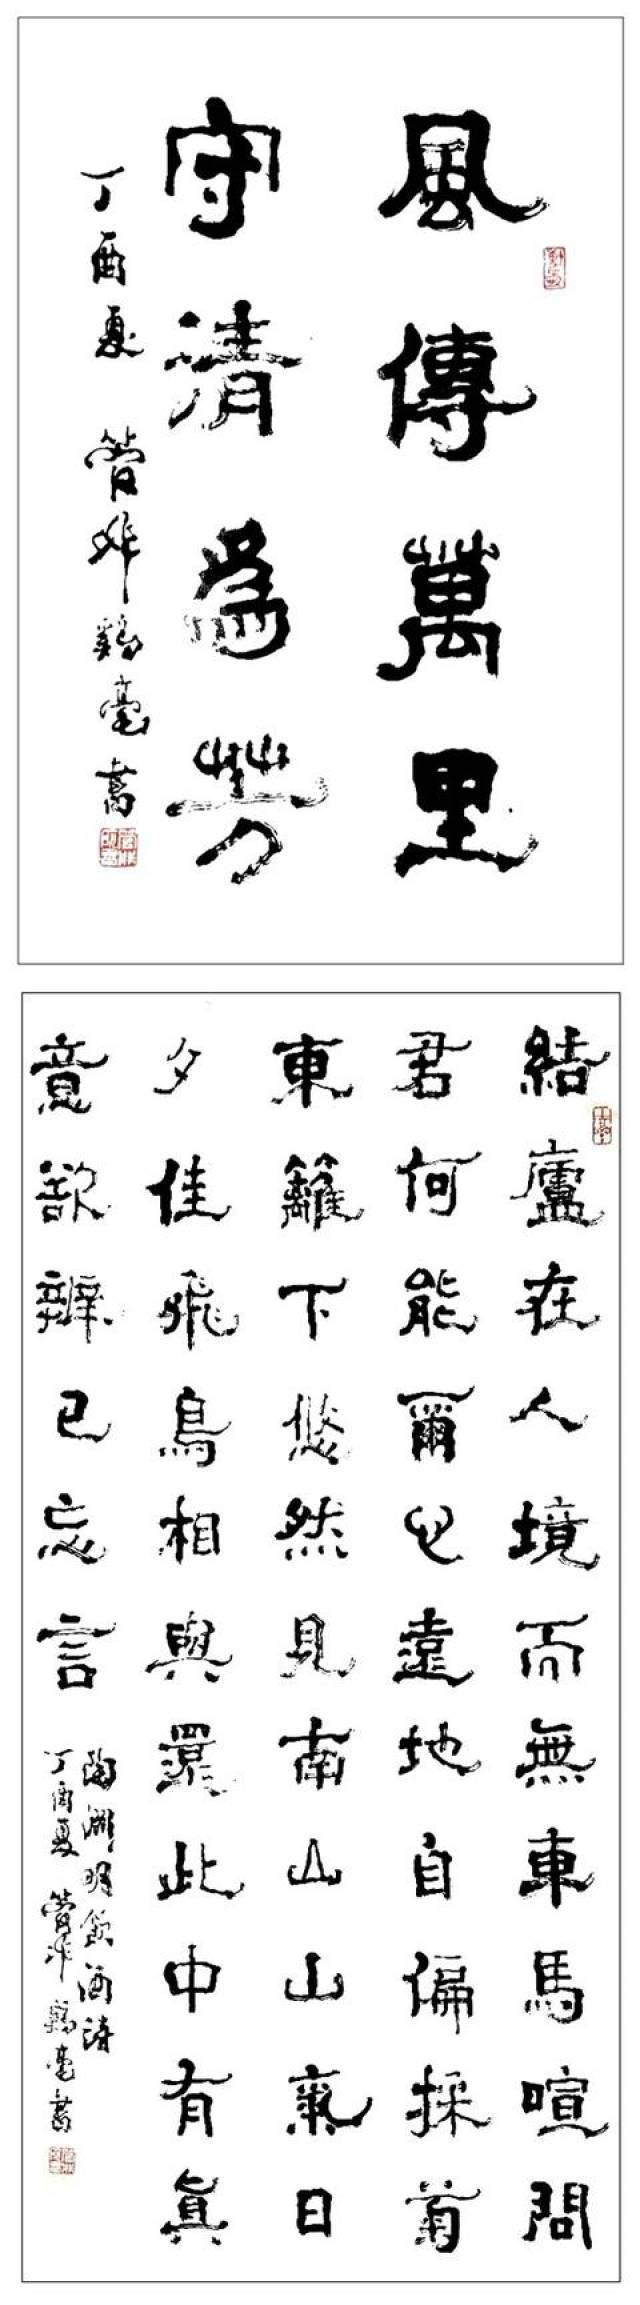 風傳萬里
守清爲芳
丁酉夏 管 鷄毫書
結廬在人境而無車馬喧問
君何能爾心遠地自偏採菊
東籬下悠然見南山山氣日
夕佳飛鳥相與還此中有眞
意欲辨已忘言
陶淵明飲酒詩
丁酉夏 管 鷄毫書